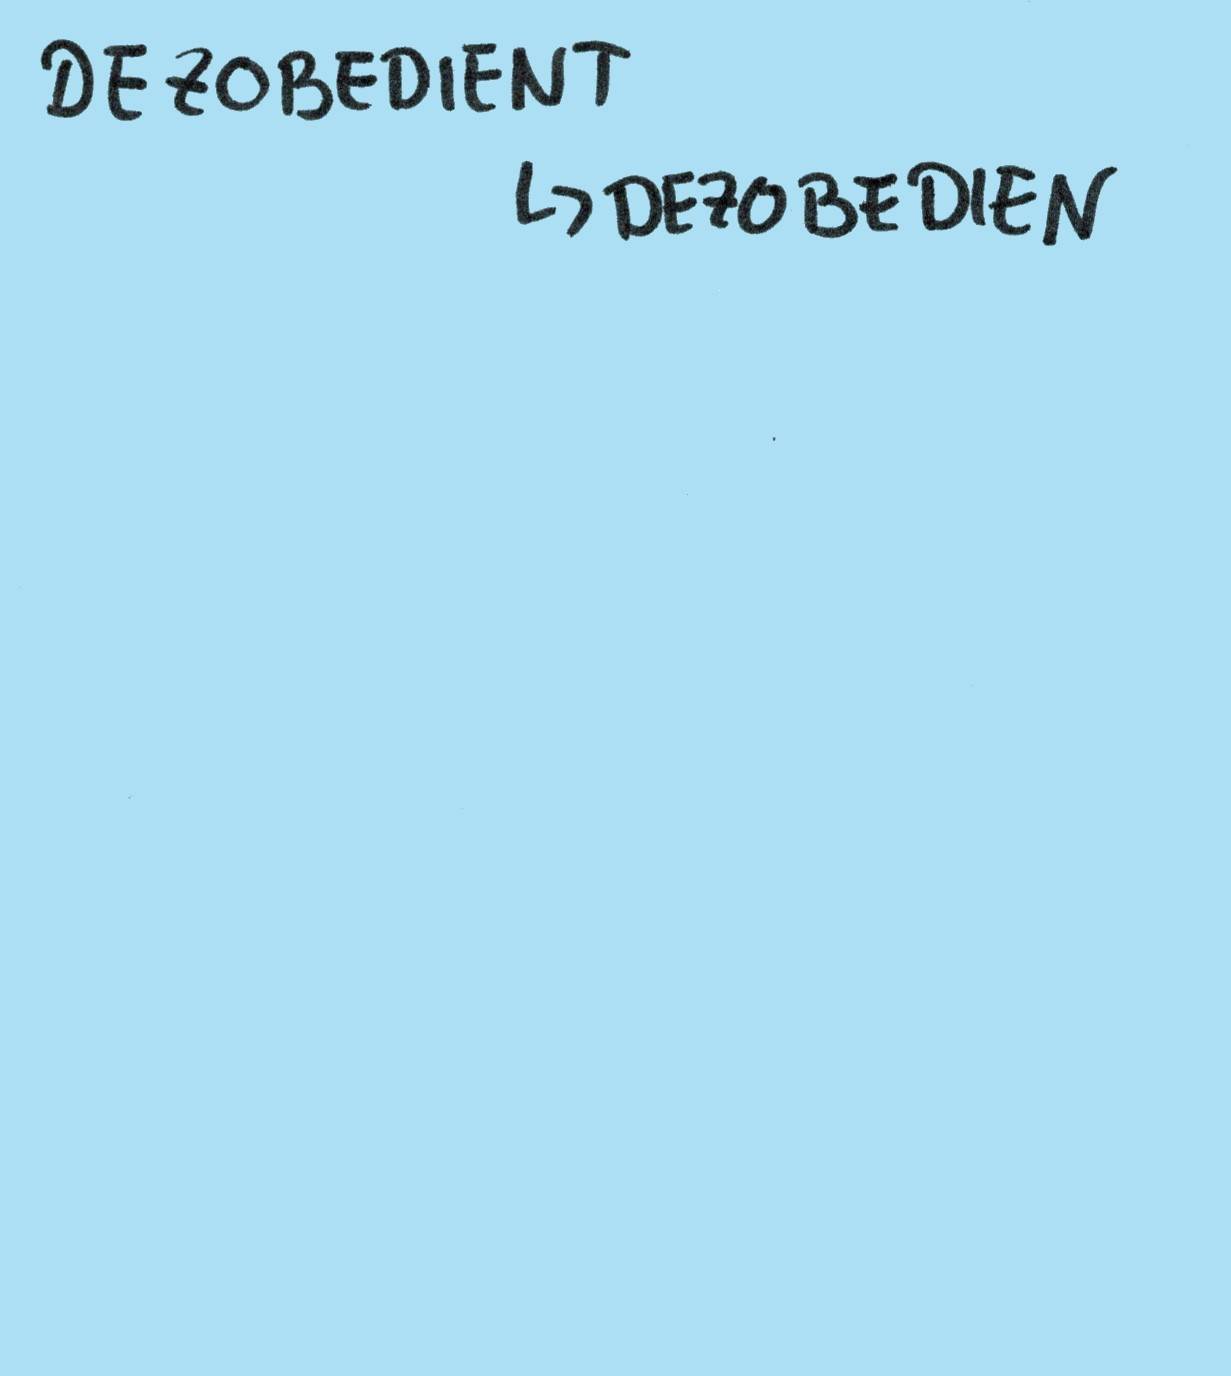 DEZOBEDIENT
↳ DEZOBEDIEN